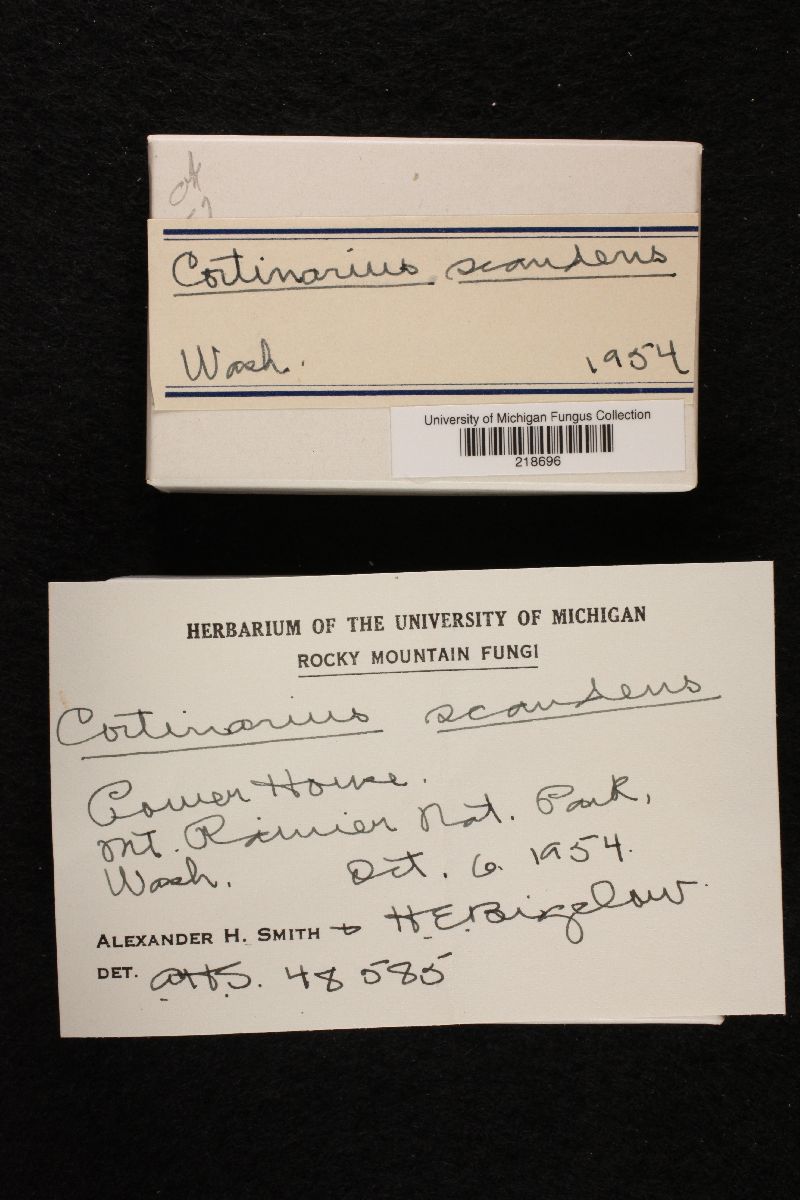 ok
Cortinarius scandens
Wash. 1954
University of Michigan Fungus Collection
218696
HERBARIUM OF THE UNIVERSITY OF MICHIGAN
ROCKY MOUNTAIN FUNGI
Cortinarius scandens
Power House.
Mt. Rainier Nat. Park,
Wash. Oct. 6 1954.
ALEXANDER H. SMITH & H.E. Bigelow.
DET. AHS. 48585